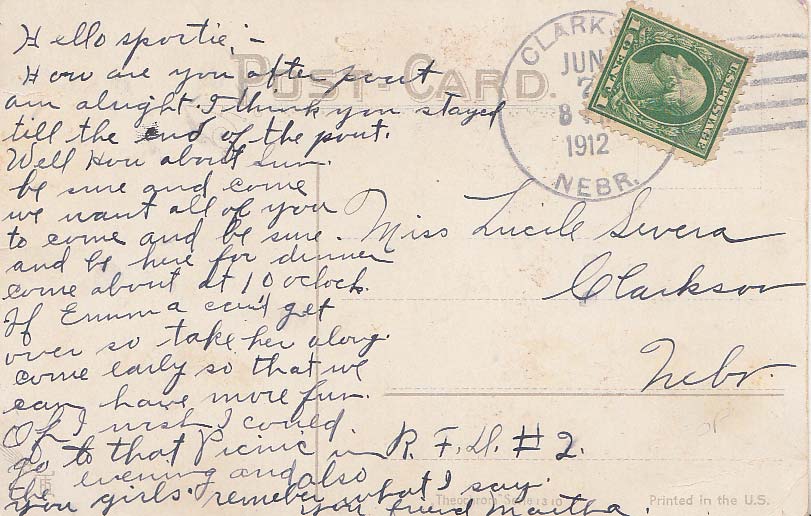 Hello sportie;-
How are you after pout
am alright. I think you stayed
till the end of the pout.
Well How about Sun.
be sure and come
we want all of you
to come and be sure.
and be here for dinner
come about at 10 oclock.
If Emma can't get
over so take her along.
come early so that we
can have more fun.
Oh I wish I could
go to that Picnic in
the evening and also
you girls. remeber what I say.
you friend Martha.
POST-CARD.
CLARKS
JUN
7
8
1912
NEBR.
U.S. POSTAGE
1 CENT 1
Miss Lucile Severa
Clarkson
Nebr.
R. F. D. #2.
Theochrom Serie 1310
Printed in the U.S.